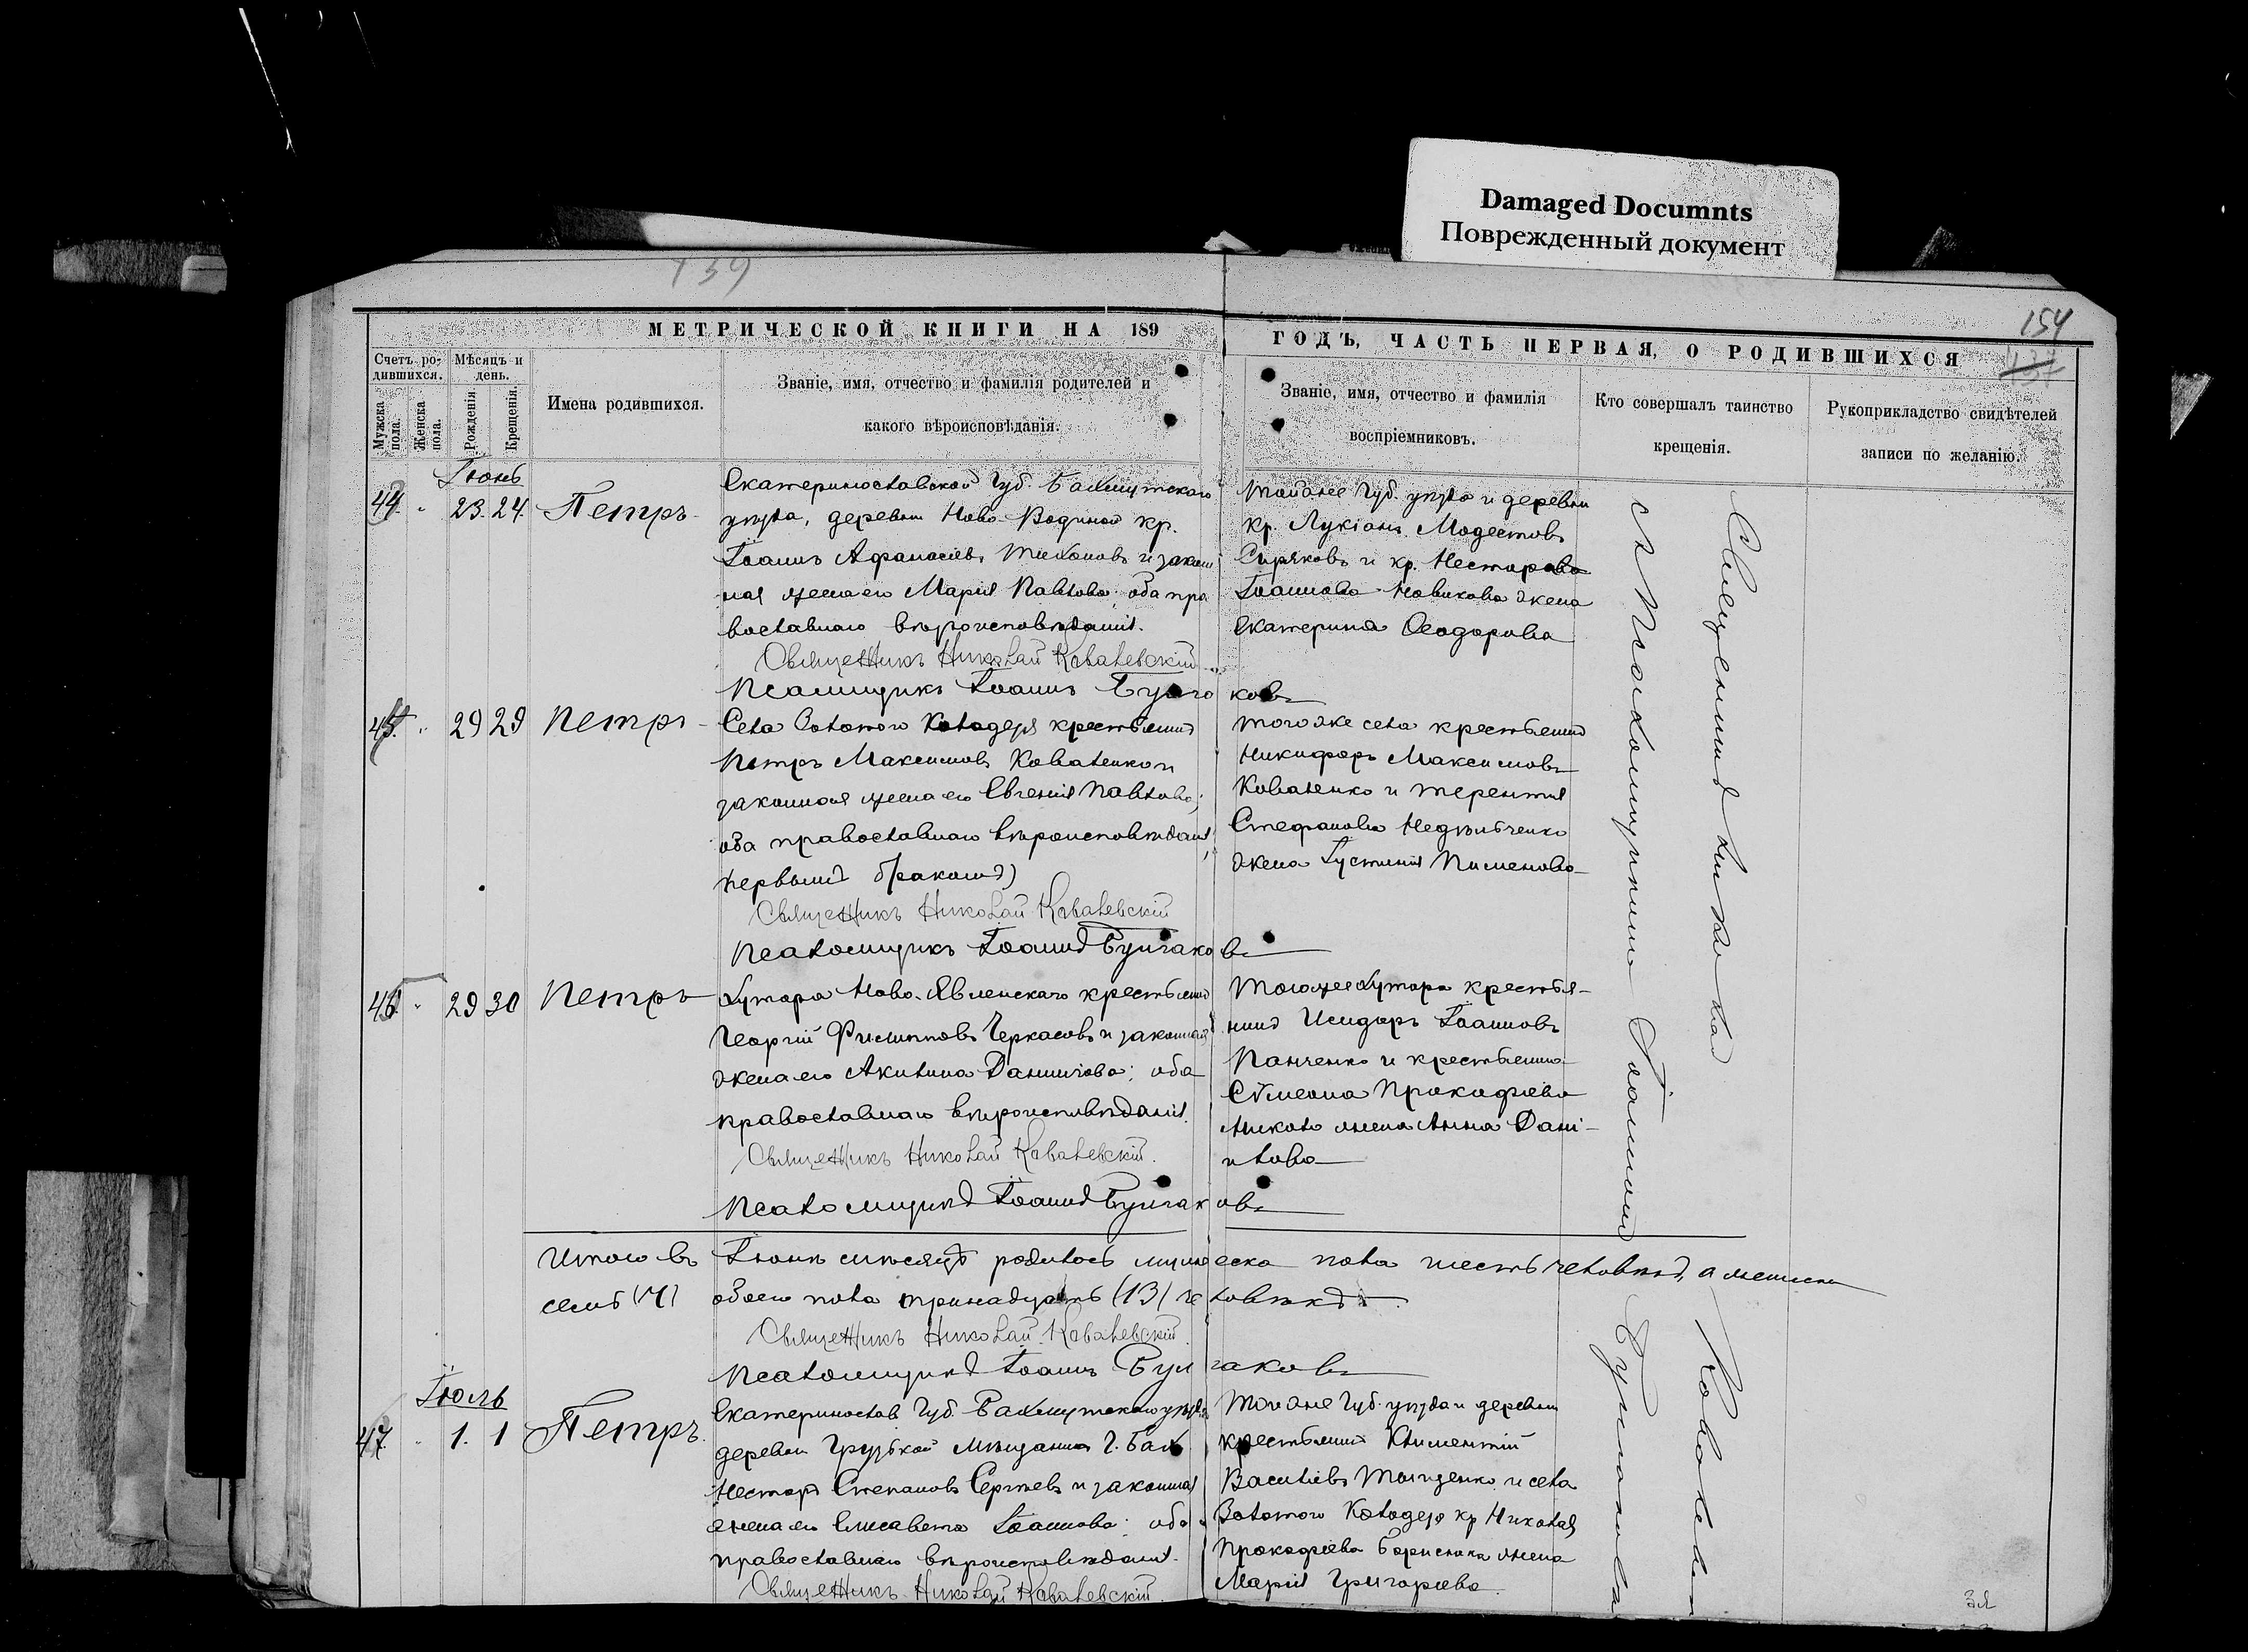 Damaged Documnts
Поврежденный документ
139
154
137
МЕТРИЧЕСКОЙ КНИГИ НА 189
ГОДЪ, ЧАСТЬ ПЕРВАЯ, О РОДИВШИХСЯ
Счетъ ро-
дившихся.
Мѣсяцъ и
день.
Мужска
пола.
Женска
пола.
Рожденія.
Крещенія.
Имена родившихся.
Званіе, имя, отчество и фамилія родителей и
какого вѣроисповѣданія.
Званіе, имя, отчество и фамилія
воспріемниковъ.
Кто совершалъ таинство
крещенія.
Рукоприкладство свидѣтелей
записи по желанію.
Іюнь
44. 23. 24. Петръ
Екатеринославской Губ. Бахмутскаго
уѣзда, деревни Ново-Водиной кр.
Іоаннъ Афанасіевъ Тихоновъ и закон
ная жена его Марія Павлова; оба пра
вославнаго вѣроисповѣданія.
Священникъ Николай Ковалевскій
Псаломщикъ Іоаннъ Булгаковъ
Тойже Губ. уѣзда и деревни
кр. Лукіанъ Модестовъ
Сиряковъ и кр. Нестора
Іоаннова Новикова жена
Екатерина Ѳеодорова
45. 29 29 Петръ
Села Золотого Колодезя крестьянинъ
Петръ Максимовъ Коваленко и
законная жена его Евгенія Павлова;
оба православнаго вѣроисповѣданія,
первымъ бракомъ)
Священникъ Николай Ковалевскій
Псаломщикъ Іоаннъ Булгаковъ
Того же села крестьянинъ
Никифоръ Максимовъ
Коваленко и Терентія
Стефанова Недѣльченко
жена Іустинія Пименова
46. 29 30 Петръ
Хутора Ново-Явленскаго крестьянинъ
Георгій Филипповъ Черкасовъ и законная
жена его Акилина Даниилова; оба
православнаго вѣроисповѣданія.
Священникъ Николай Ковалевскій.
Псаломщикъ Іоаннъ Булгаковъ
Того же хутора крестья-
нинъ Исидоръ Іоанновъ
Панченко и крестьянина
Сѵмеона Прокофіева
жена Анна Дані-
илова
Итого въ Іюнѣ мѣсяцѣ родилось мужеска пола шесть человѣкъ, а женска
семь (7) обоего пола тринадцать (13) человѣкъ.
Священникъ Николай Ковалевскій.
Псаломщикъ Іоаннъ Булгаковъ
Іюль
47. 1. 1 Петръ.
Екатеринослав Губ. Бахмутскаго уѣзда
деревни Грузкой мѣщанинъ г. Бах
Несторъ Степановъ Сергѣевъ и законная
жена его Елисавета Іоаннова; оба
православнаго вѣроисповѣданія.
Священникъ Николай Ковалевскій.
Тойже Губ. уѣзда и деревни
крестьянинъ Климентій
Василіевъ и села
Золотого Колодезя кр Николая
Прокофіева жена
Марія Григоріева.
Священникъ Николай Ковалевскій
съ Псаломщикомъ Іоанномъ Булгаковымъ